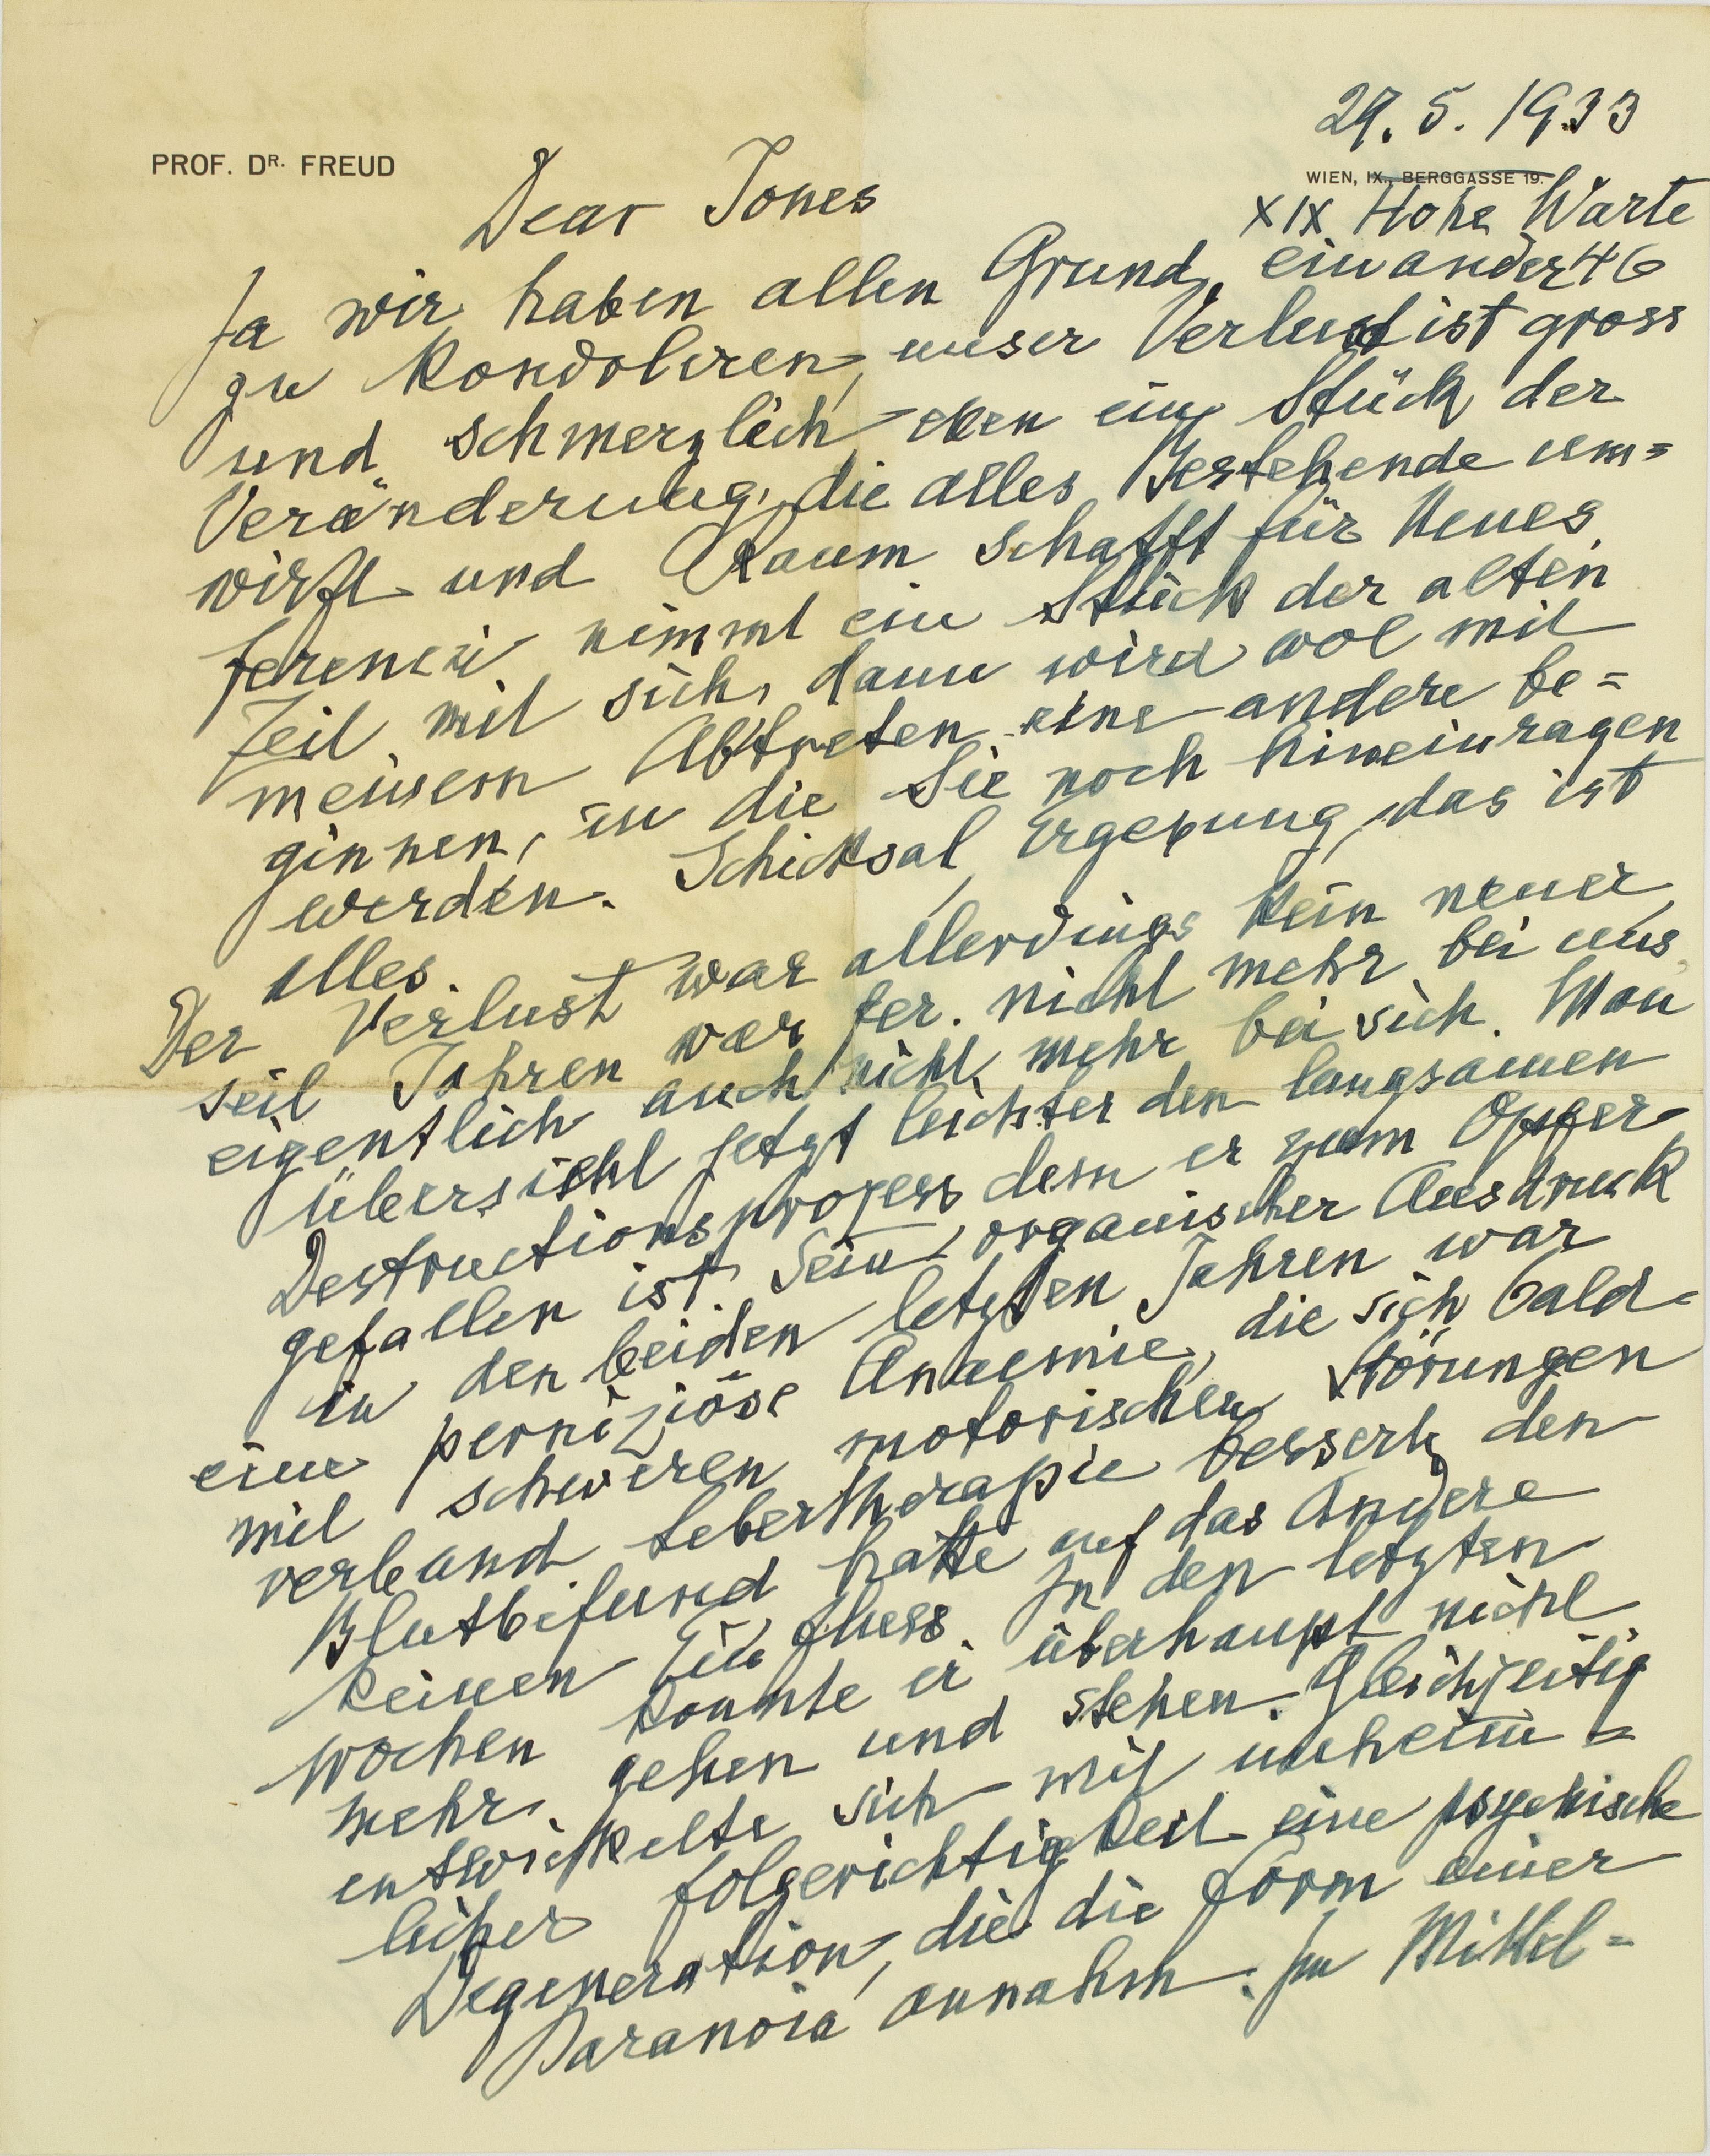 29. 5. 1933
PROF. DR. FREUD
WIEN, IX., BERGGASSE 19.
XIX Hohe Warte
46
Dear Jones
Ja wir haben allen Grund, einander
zu kondoliren, unser Verlust ist gross
und schmerzlich, eben ein Stück der
Veränderung, die alles Bestehende um=
wirft und Raum schafft für Neues.
Ferenczi nimmt ein Stück der alten
Zeit mit sich, dann wird wol mit
meinem Abtreten eine andere be=
ginnen, in die Sie noch hineinragen
werden. Schicksal, Ergebung, das ist
alles.
Der Verlust war allerdings kein neuer,
seit Jahren war Fer. nicht mehr bei uns,
eigentlich auch nicht mehr bei sich. Man
übersieht jetzt leichter den langsamen
Destructionsprozess dem er zum Opfer
gefallen ist. Sein organischer Ausdruck
in den beiden letzten Jahren war
eine perniziöse Anaemie, die sich bald
mit schweren motorischen Störungen
verband. Lebertherapie besserte den
Blutbefund hatte auf das Andere
keinen Einfluss. In den letzten
Wochen konnte er überhaupt nicht
mehr gehen und stehen. Gleichzeitig
entwickelte sich mit unheim=
licher Folgerichtigkeit eine psychische
Degeneration, die die Form einer
Paranoia annahm. Im Mittel=